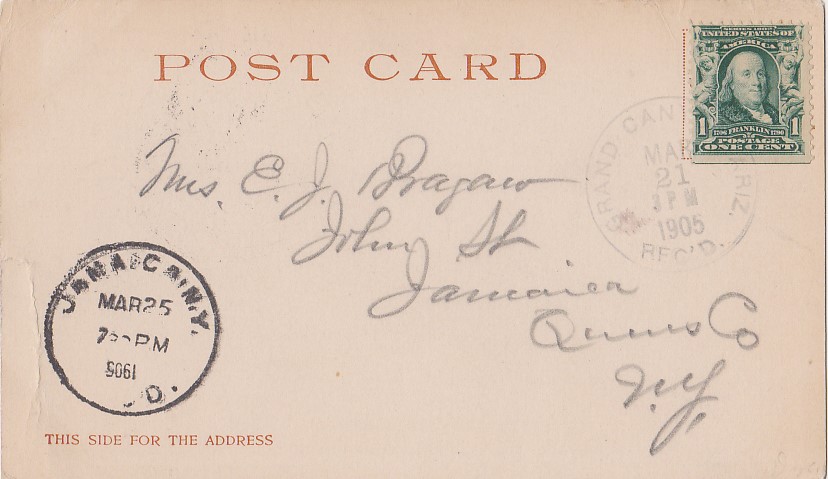 POST CARD
SERIES 1902
UNITED STATES OF
AMERICA
1 1706 FRANKLIN 1790 1
POSTAGE
ONE CENT
GRAND CAN ARIZ.
MAR
21
3 PM
1905
REC'D.
Mrs. E. J. Bragaw
John St
Jamaica
Queens Co
N.Y.
JAMAICA, N.Y.
MAR 25
7 PM
1905
THIS SIDE FOR THE ADDRESS